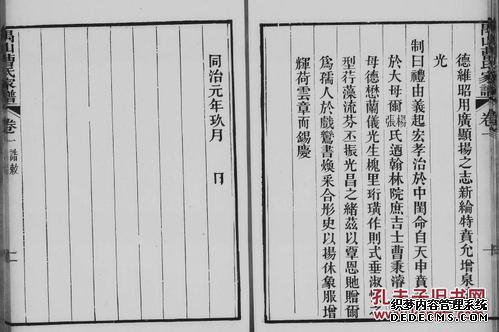 萬山曹氏家譜
卷一
德維昭用廣顯揚之志新綸特賁允增泉
光
制曰禮由義起宏孝治於中闈命自天申賁
於大母爾楊張氏迺翰林院庶吉士曹秉濬
母德懋蘭儀光生槐里珩璜作則式垂淑
型荇藻流芬丕振光昌之緒茲以覃恩貤贈爾
為孺人於戲鸞書煥采合彤史以揚休象服增
輝荷雲章而錫慶
同治元年玖月 日
萬山曹氏家譜
卷一
誥敕
十一
孔夫子旧书网
织梦内容管理系统
DEDECMS.COM